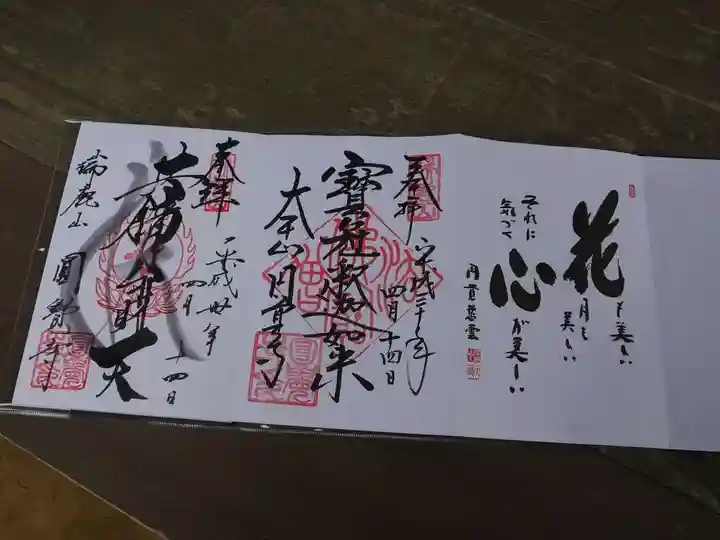 花も美しい
月も美しい
それに
気づく
心が美しい
円貫慈雲
奉拝
平成三十年
四月十四日
寳冠釈迦如来
大本山円覚寺
奉拝
平成卅年
四月十四日
大弁才天
瑞鹿山
圓覚寺